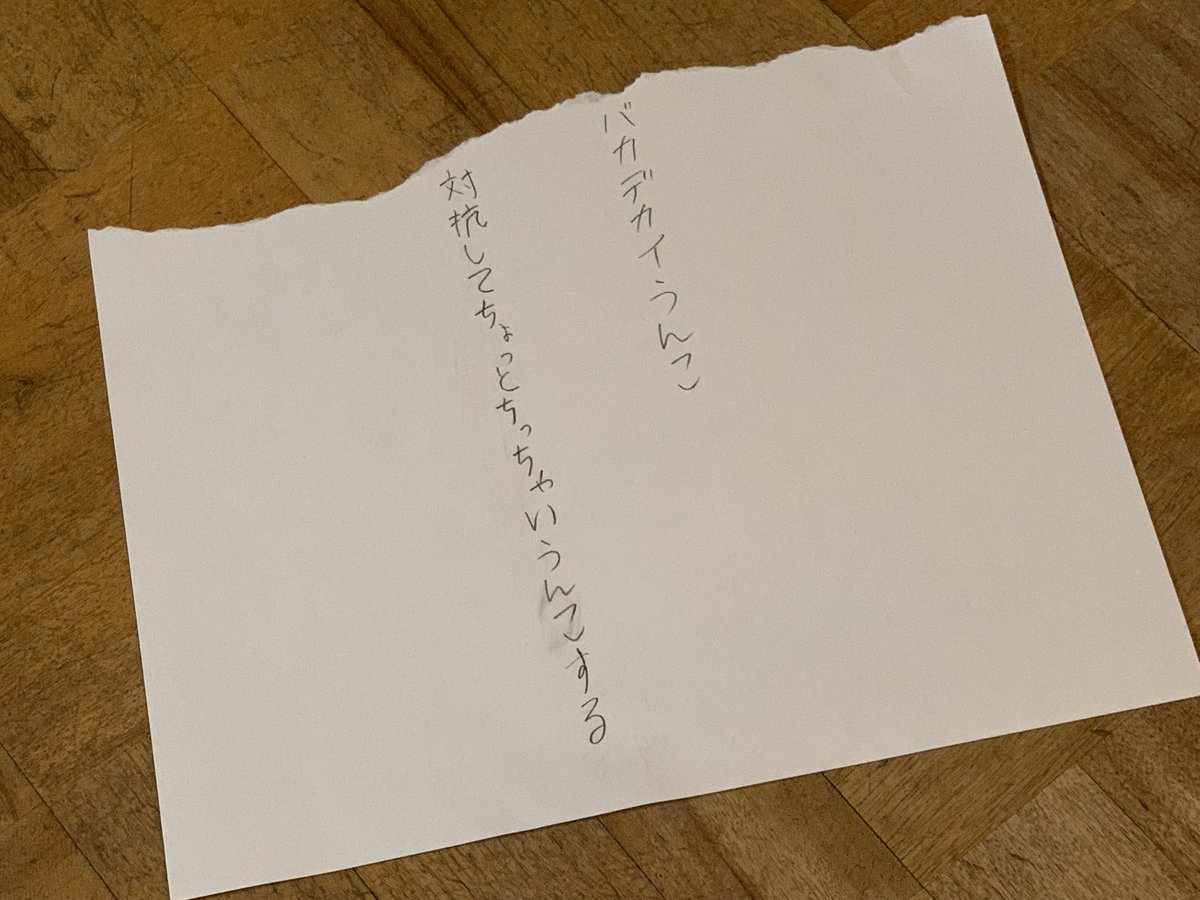 バカデカイうんこ
対抗してちょっとちっちゃいうんこする